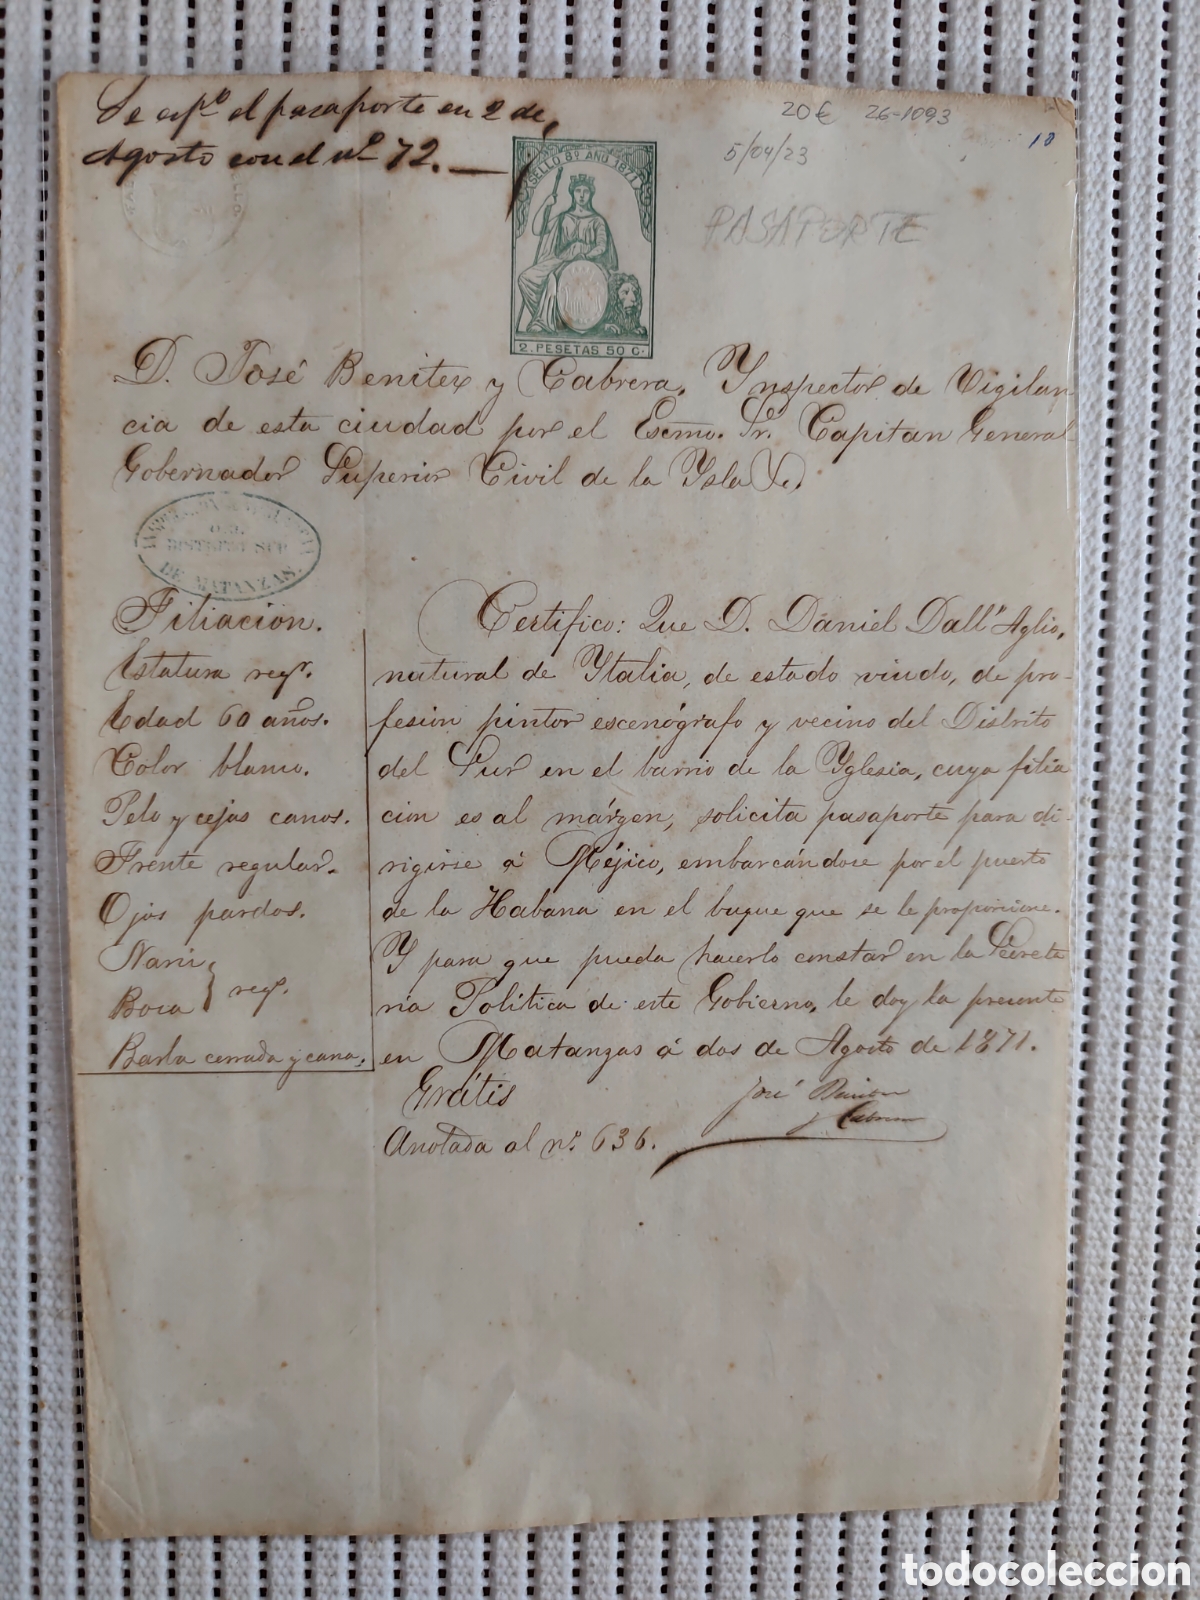 Se espº el pasaporte en 2 de
Agosto con el nº 72.
20€ 26-1093
5/04/23
18
PASAPORTE
SELLO 8º AÑO 1871
2. PESETAS 50 C.
D. José Benitez y Cabrera, Ynspector de Vigilan-
cia de esta ciudad por el Escmo. Sr. Capitan General
Gobernador Superior Civil de la Ysla &.
DISTRITO SUR
DE MATANZAS.
Filiación.
Estatura regr.
Edad 60 años.
Color blanco.
Pelo y cejas canos.
Frente regular.
Ojos pardos.
Nariz
Boca } regr.
Barba cerrada y cana.
Certifico: Que D. Daniel Dall'Aglio,
natural de Ytalia, de estado viudo, de pro-
fesión pintor escenógrafo y vecino del Distrito
del Sur en el barrio de la Yglesia, cuya filia
cion es al márgen, solicita pasaporte para di-
rigirse á Méjico, embarcándose por el puerto
de la Habana en el buque que se le proporcione.
Y para que pueda hacerlo constar en la Secreta
ria Política de este Gobierno, le doy la presente
en Matanzas á dos de Agosto de 1871.
Grátis
José Benitez
y Cabrera
Anotada al nº. 636.
todocoleccion